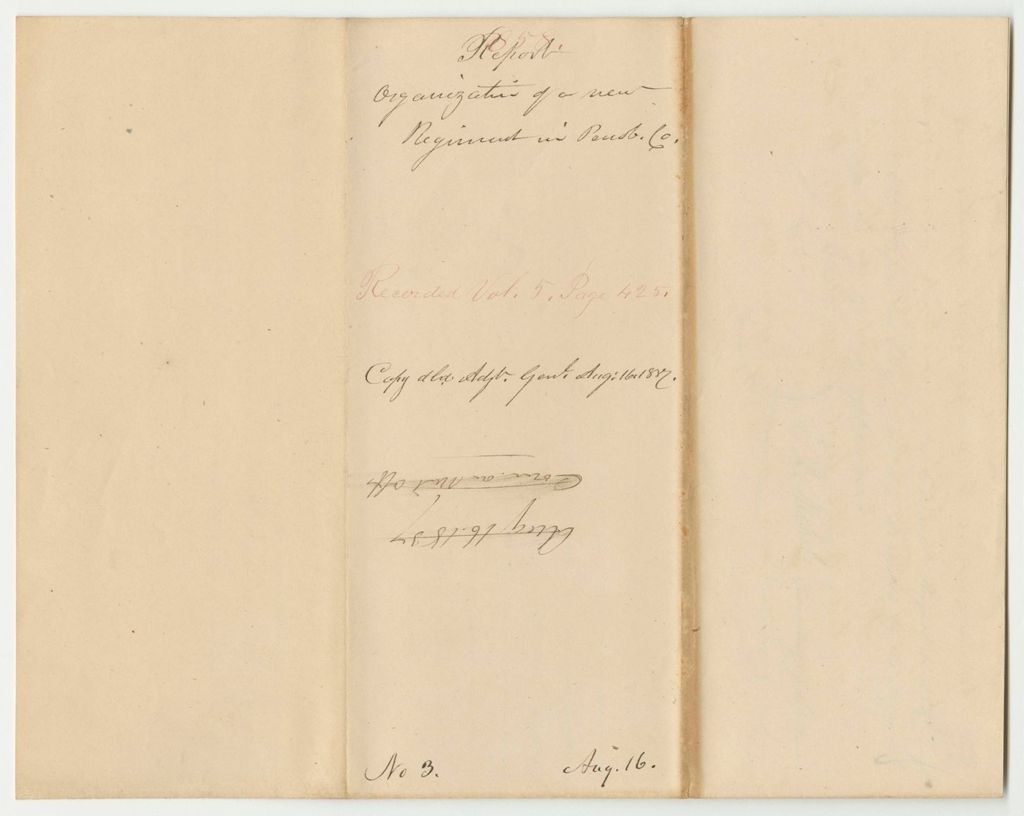 Report
Organization of a new
Regiment in Penob. Co.
Recorded Vol. 5. Page 425.
Copy dld Adjt. Genl. Aug: 16. 1837.
Com. on Mil. Aff
Aug 16. 1837
No 3. Aug. 16.